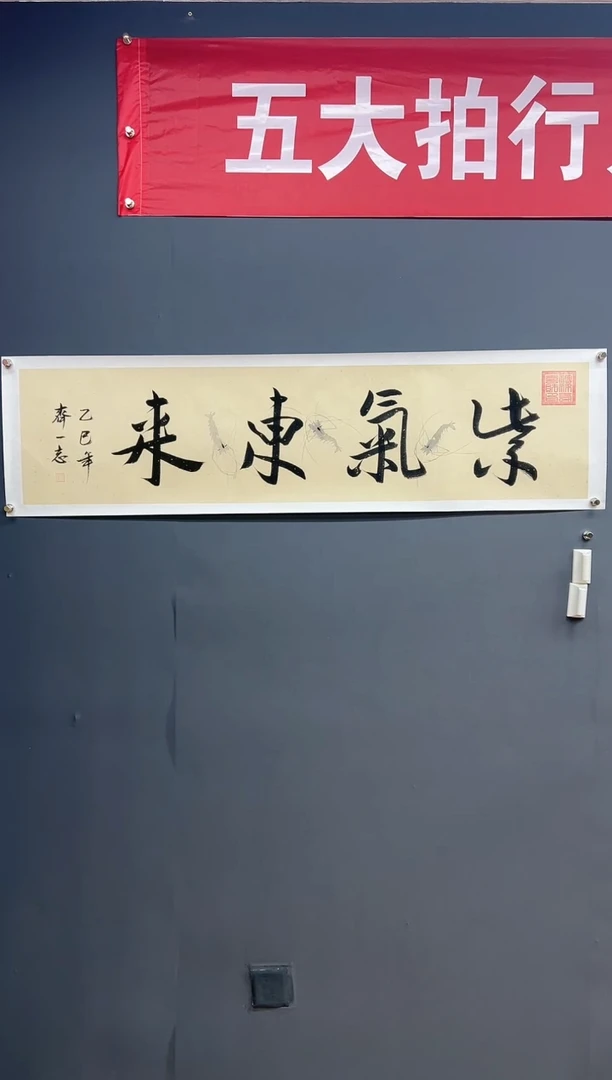 五大拍行
紫氣東来
乙巳年
齊一志